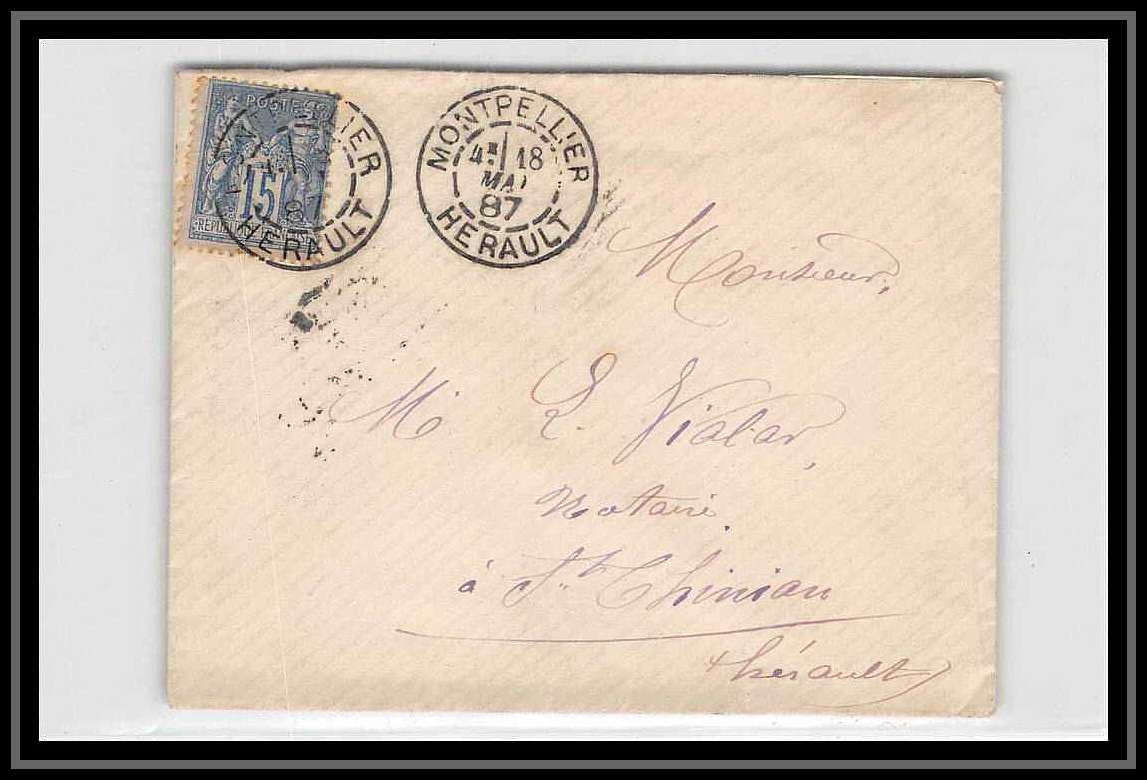 POSTES
15
REPU
LLIER
87
HERAULT
MONTPELLIER
4E 18
MAI
87
HERAULT
Monsieur,
Mr L. Vialar,
Notaire.
à St. Chinian
Hérault